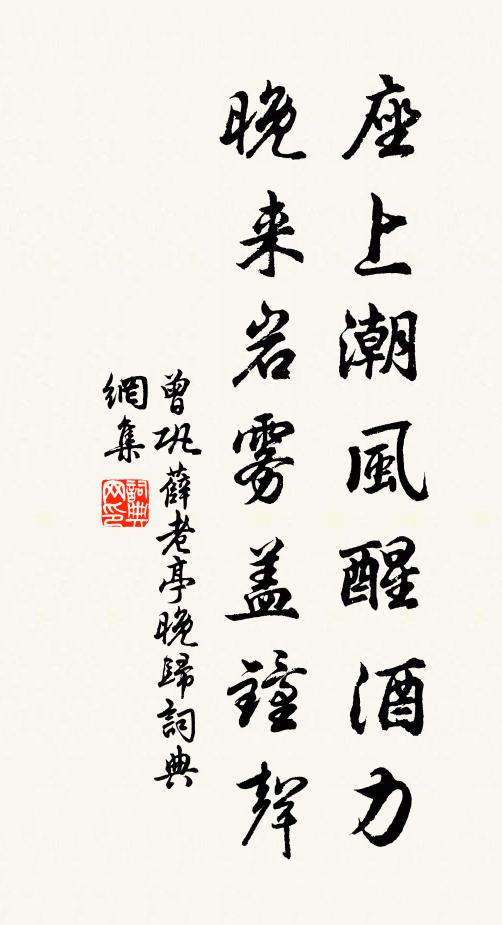 座上潮風醒酒力
晚来岩雾盖鐘聲
曾巩薛老亭晚歸詞典
網集
詞典
网印